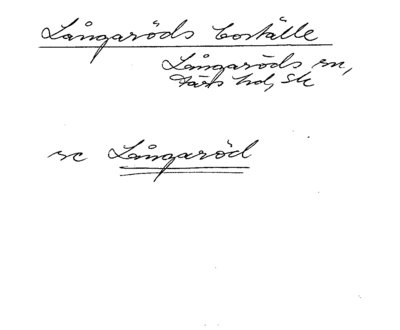 Långaröds boställe
Långaröds sn,
Färs hd, Sk
se Långaröd